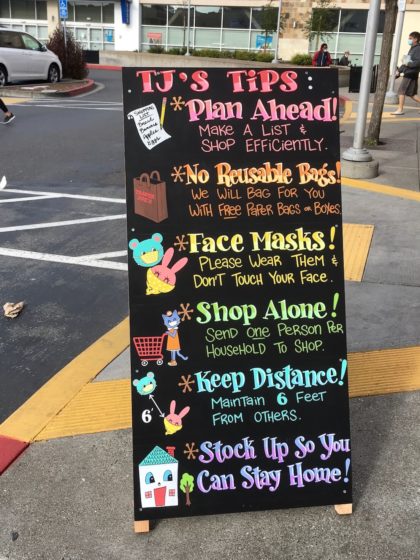 TJ's TiPS:
SHOPPING LIST
Bread
Bananas
Apples
Eggs
*Plan Ahead!
MAKE A LIST &
SHOP EFFICIENTLY.
*No Reusable Bags!
WE WILL BAG FOR YOU
WITH FREE PAPER BAGS OR BOXES.
*Face Masks!
PLEASE WEAR THEM &
DON'T TOUCH YOUR FACE.
*Shop Alone!
SEND ONE PERSON PER
HOUSEHOLD TO SHOP.
*Keep Distance!
MAINTAIN 6 FEET
FROM OTHERS.
6'
*Stock Up So You
Can Stay Home!